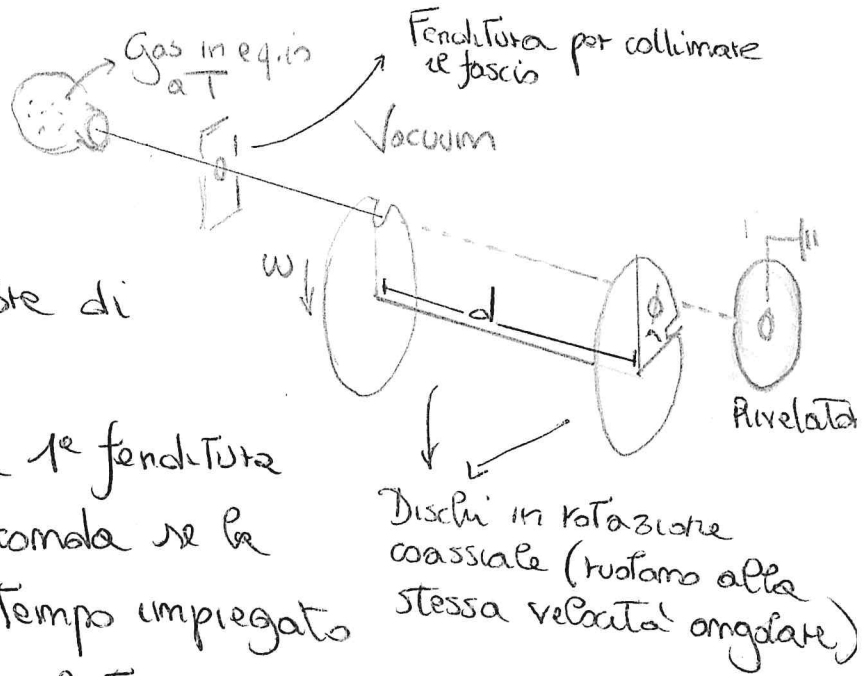 Gas in eq.io
a T
Fenditura per collimare
il fascio
Vacuum
ω
d
ϕ
Rivelator
re di
1ª fenditura
conda se la
Tempo impiegato
Dischi in rotazione
coassiale (ruotano alla
stessa velocità angolare)